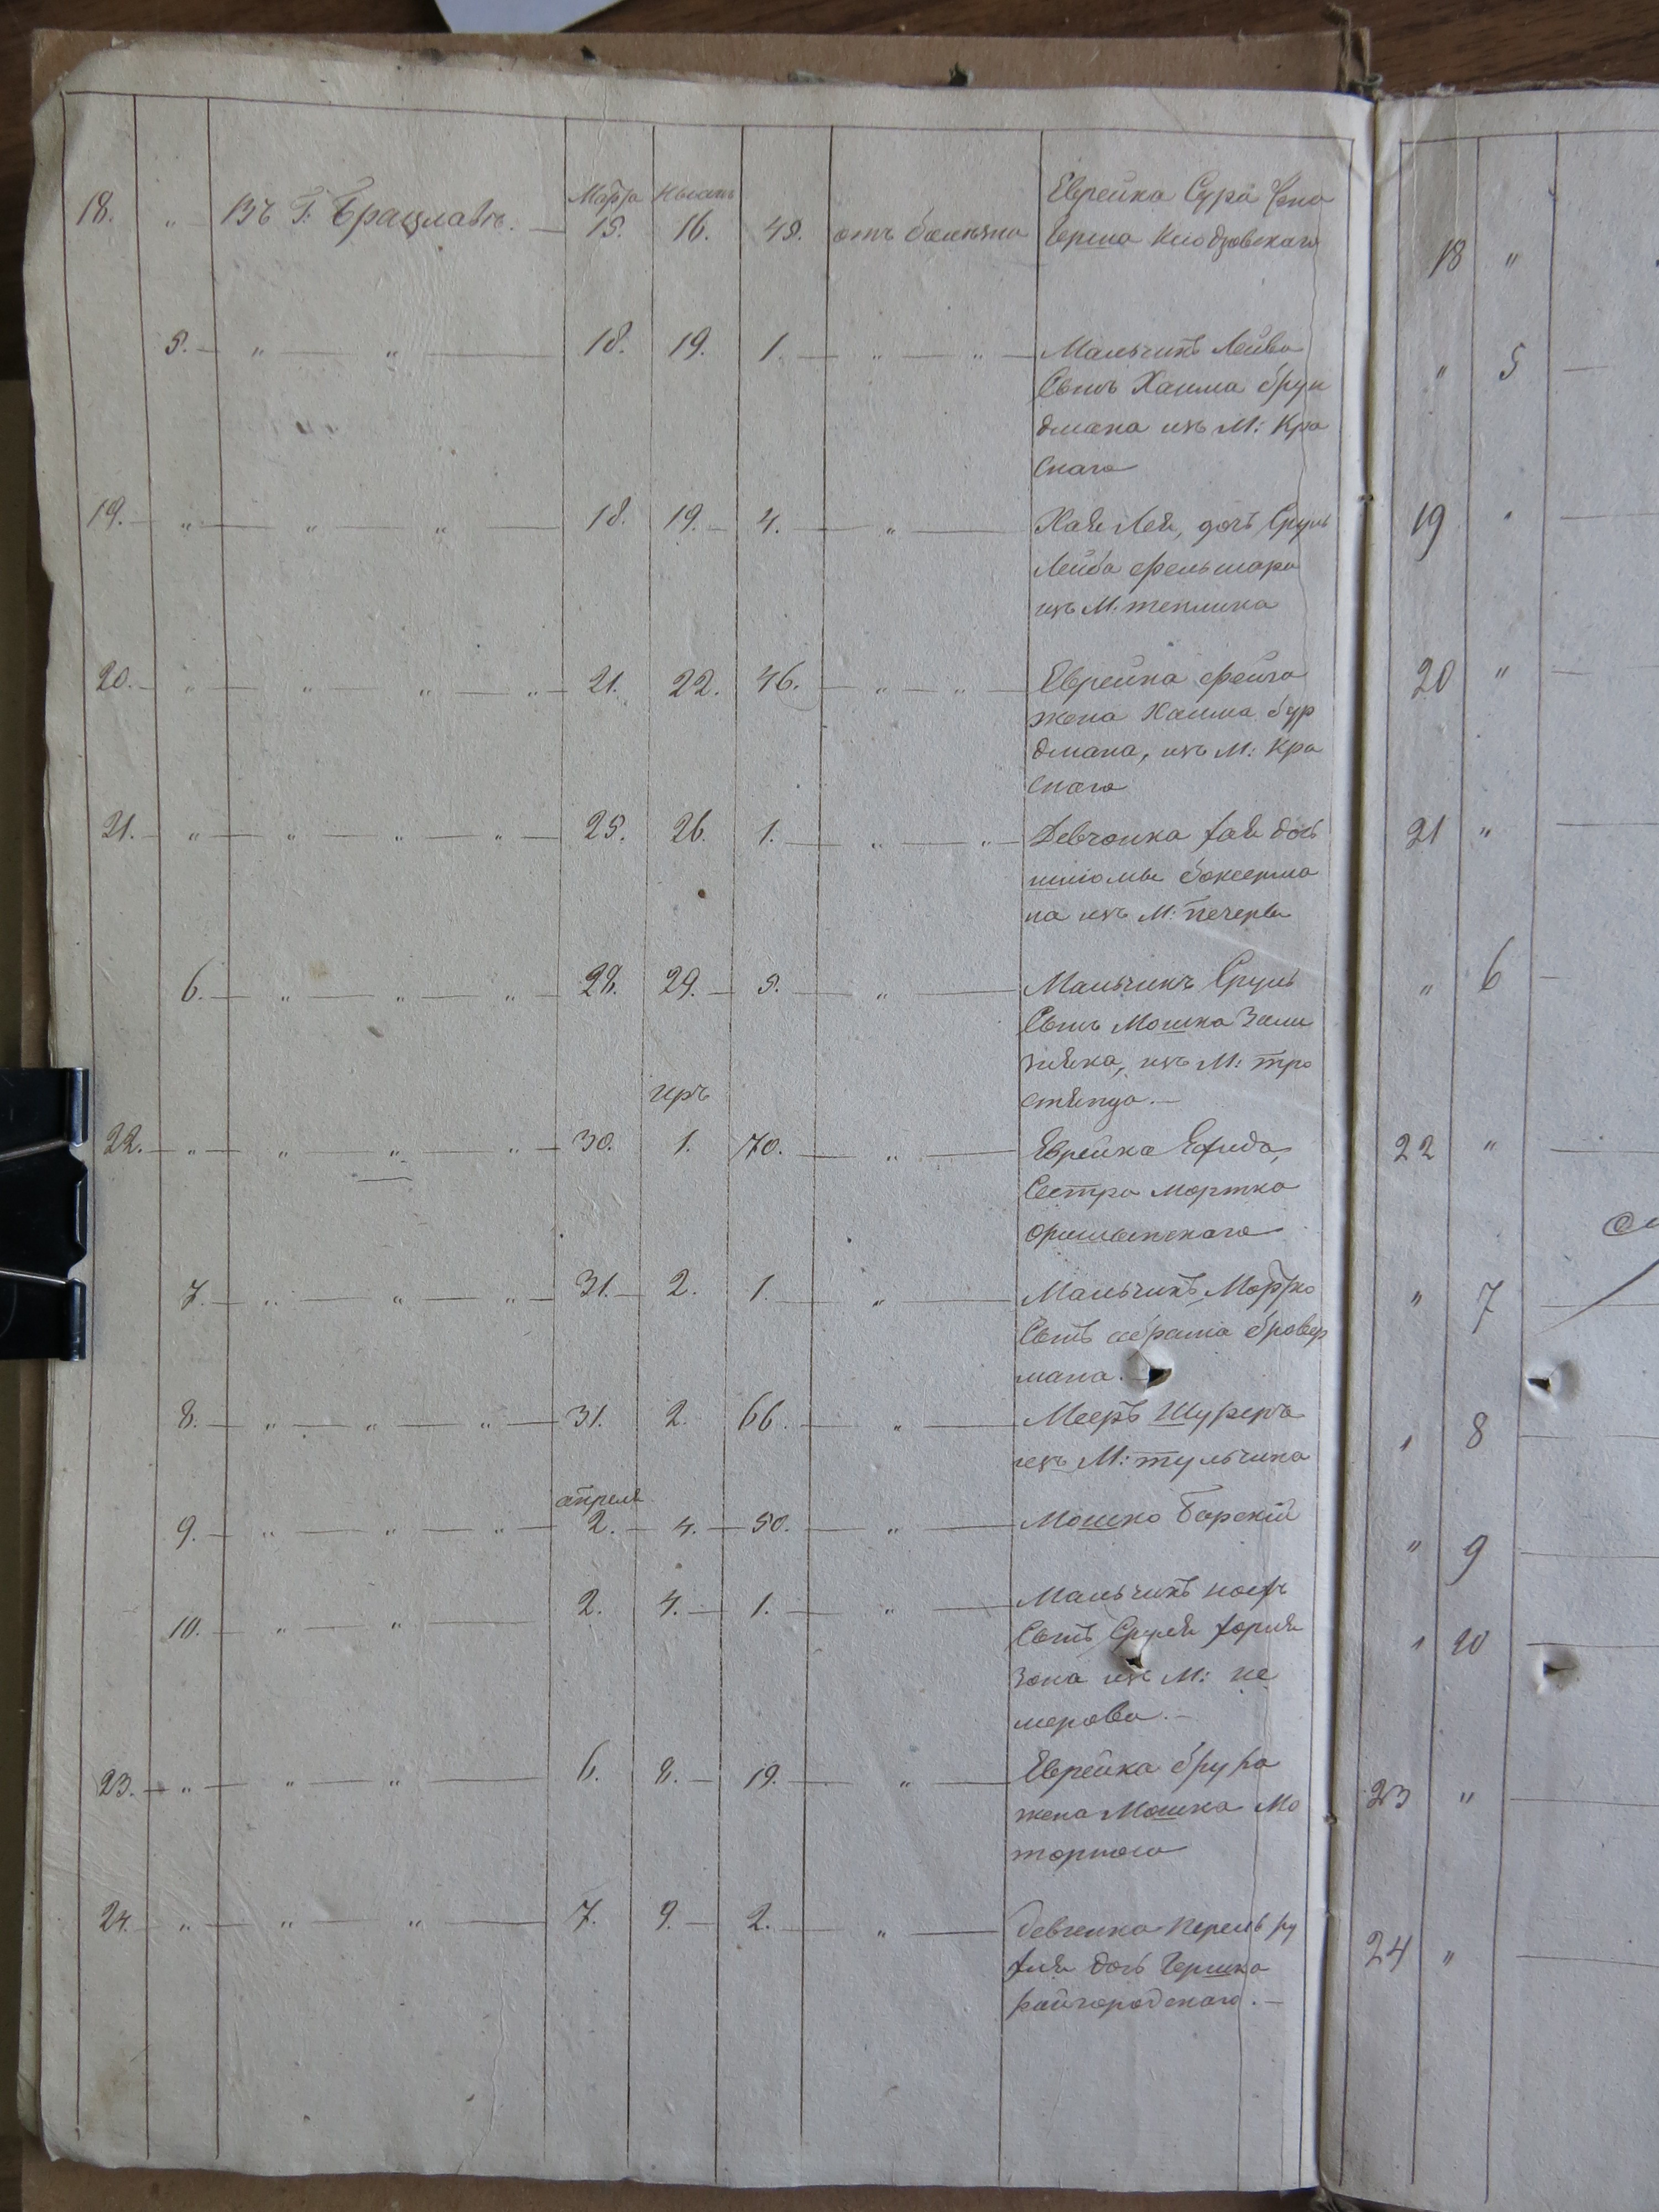 Марта
18. " Въ Г: Брацлавѣ. — 15. 16. 45. отъ болѣзни Еврейка Сура жена
Герша
5. — " — " — 18. 19. 1. — " — " — Мальчикъ Лейба
Сынъ Хаима брун
дмана изъ М: Кра
снаго
19. — " — " — " — 18. 19. — 4. — " — Хая Лея, дочь Сруль
Лейба фельшара
изъ М. теплика
20. — " — " — " — " — 21. 22. 46. — " — " — Еврейка фейга
жена Хаима бур
дмана, изъ М: Кра
снаго
21. — " — " — " — " — 25. 26. 1. — " — " — Девчонка хая дочь
шломы боксерма
на изъ М: печеры
6. — " — " — " — 28. 29. — 5. — " — Мальчикъ Сруль
Сынъ Мошка Зали
зняка, изъ М: тро
стянца. —
22. — " — " — " — " — 30. 1. 70. — " — Еврейка
Сестра Мортка
7. — " — " — " — 31. — 2. 1. — " — Мальчикъ Мортко
Сынъ абрама бровер
мана. —
8. — " — " — " — 31. 2. 66. — " — Мееръ
изъ М: тульчина
апреля
9. — " — " — " — 2. — 4. — 50. — " — Мошко Барскій
10. — " — " — 2. 4. — 1. — " — Мальчикъ
Сынъ Сруля
зона изъ М: не
мерова. —
23. — " — " — " — 6. 8. — 19. — " — Еврейка
жена Мошка Мо
торного
24. — " — " — " — 7. 9. — 2. — " — девченка перель ру
хля дочь Гершка
райгородскаго. —
18 "
" 5 —
19 " —
20 " —
21 " —
" 6 —
22 " —
" 7 —
" 8 —
" 9 —
" 10 —
23 " —
24 " —